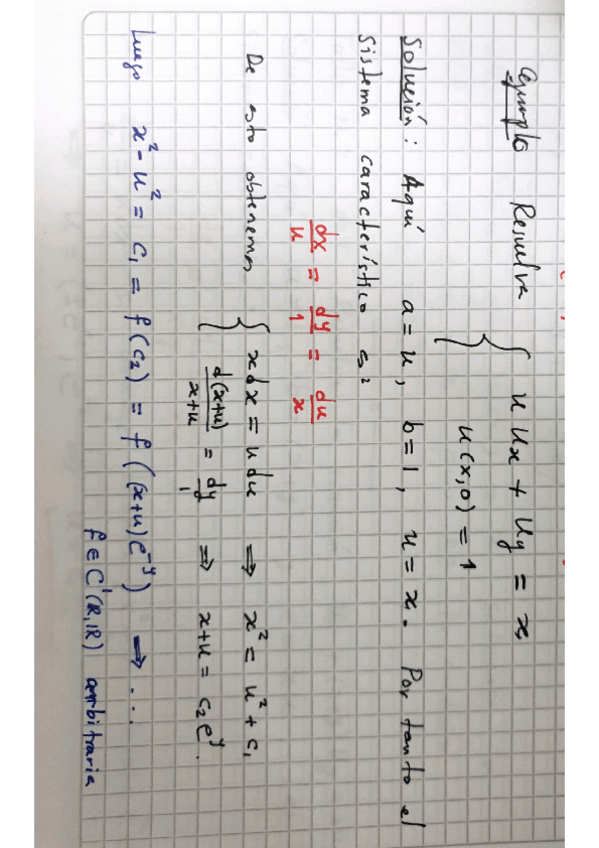 Ejemplo Resuelva { u uₓ + u_y = x,
u(x,0) = 1
Solución: Aquí a = u, b = 1, u = x. Por tanto el
Sistema característico es
dx/u = dy/1 = du/x
De esto obtenemos { x dx = u du ⇒ x² = u² + c₁
d(x+u)/(x+u) = dy/1 ⇒ x+u = c₂ e^y.
Luego x² - u² = c₁ = f(c₂) = f((x+u)e^{-y}) ⇒ ...
f ∈ C¹(ℝ,ℝ) arbitraria